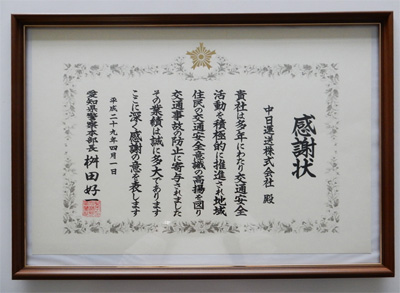 感謝状
中日運送株式会社 殿
貴社は多年にわたり交通安全
活動を積極的に推進され地域
住民の交通安全意識の高揚を図り
交通事故の防止に寄与されました
その業績は誠に多大であります
ここに深く感謝の意を表します
平成二十九年四月一日
愛知県警察本部長 桝田好一